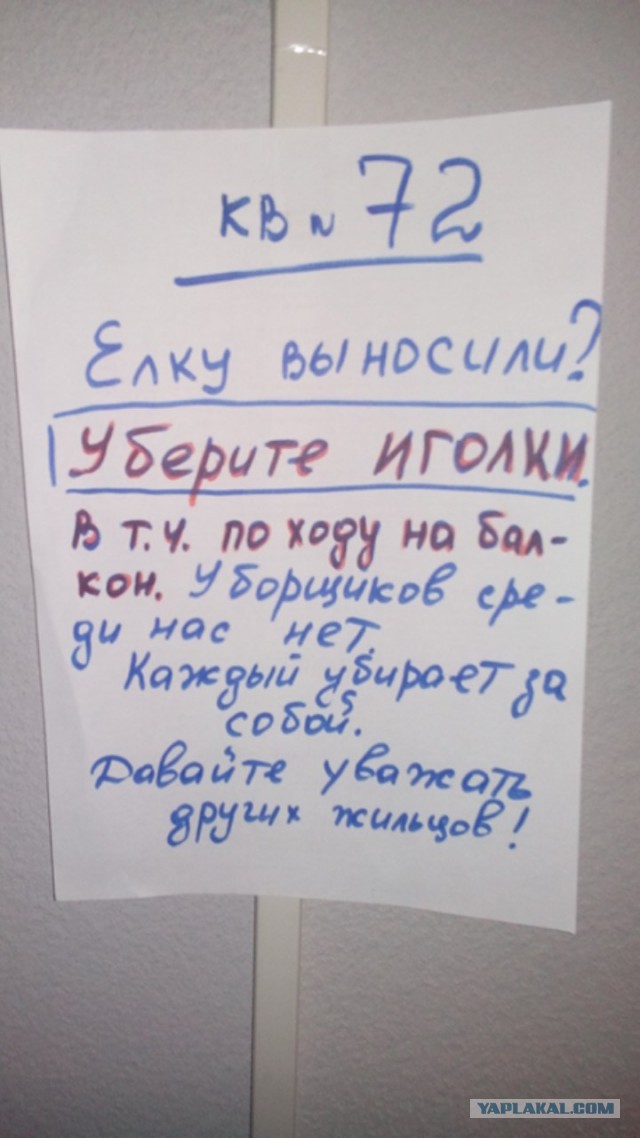 кв N 72
Елку выносили?
Уберите иголки.
В т.ч. по ходу на бал-
кон. Уборщиков сре-
ди нас нет.
Каждый убирает за
собой.
Давайте уважать
других жильцов!
YAPLAKAL.COM